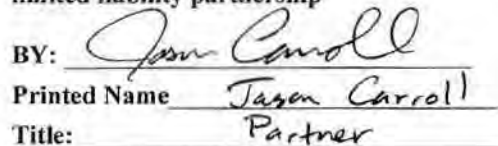 limited liability partnership
BY: Jason Carroll
Printed Name Jason Carroll
Title: Partner